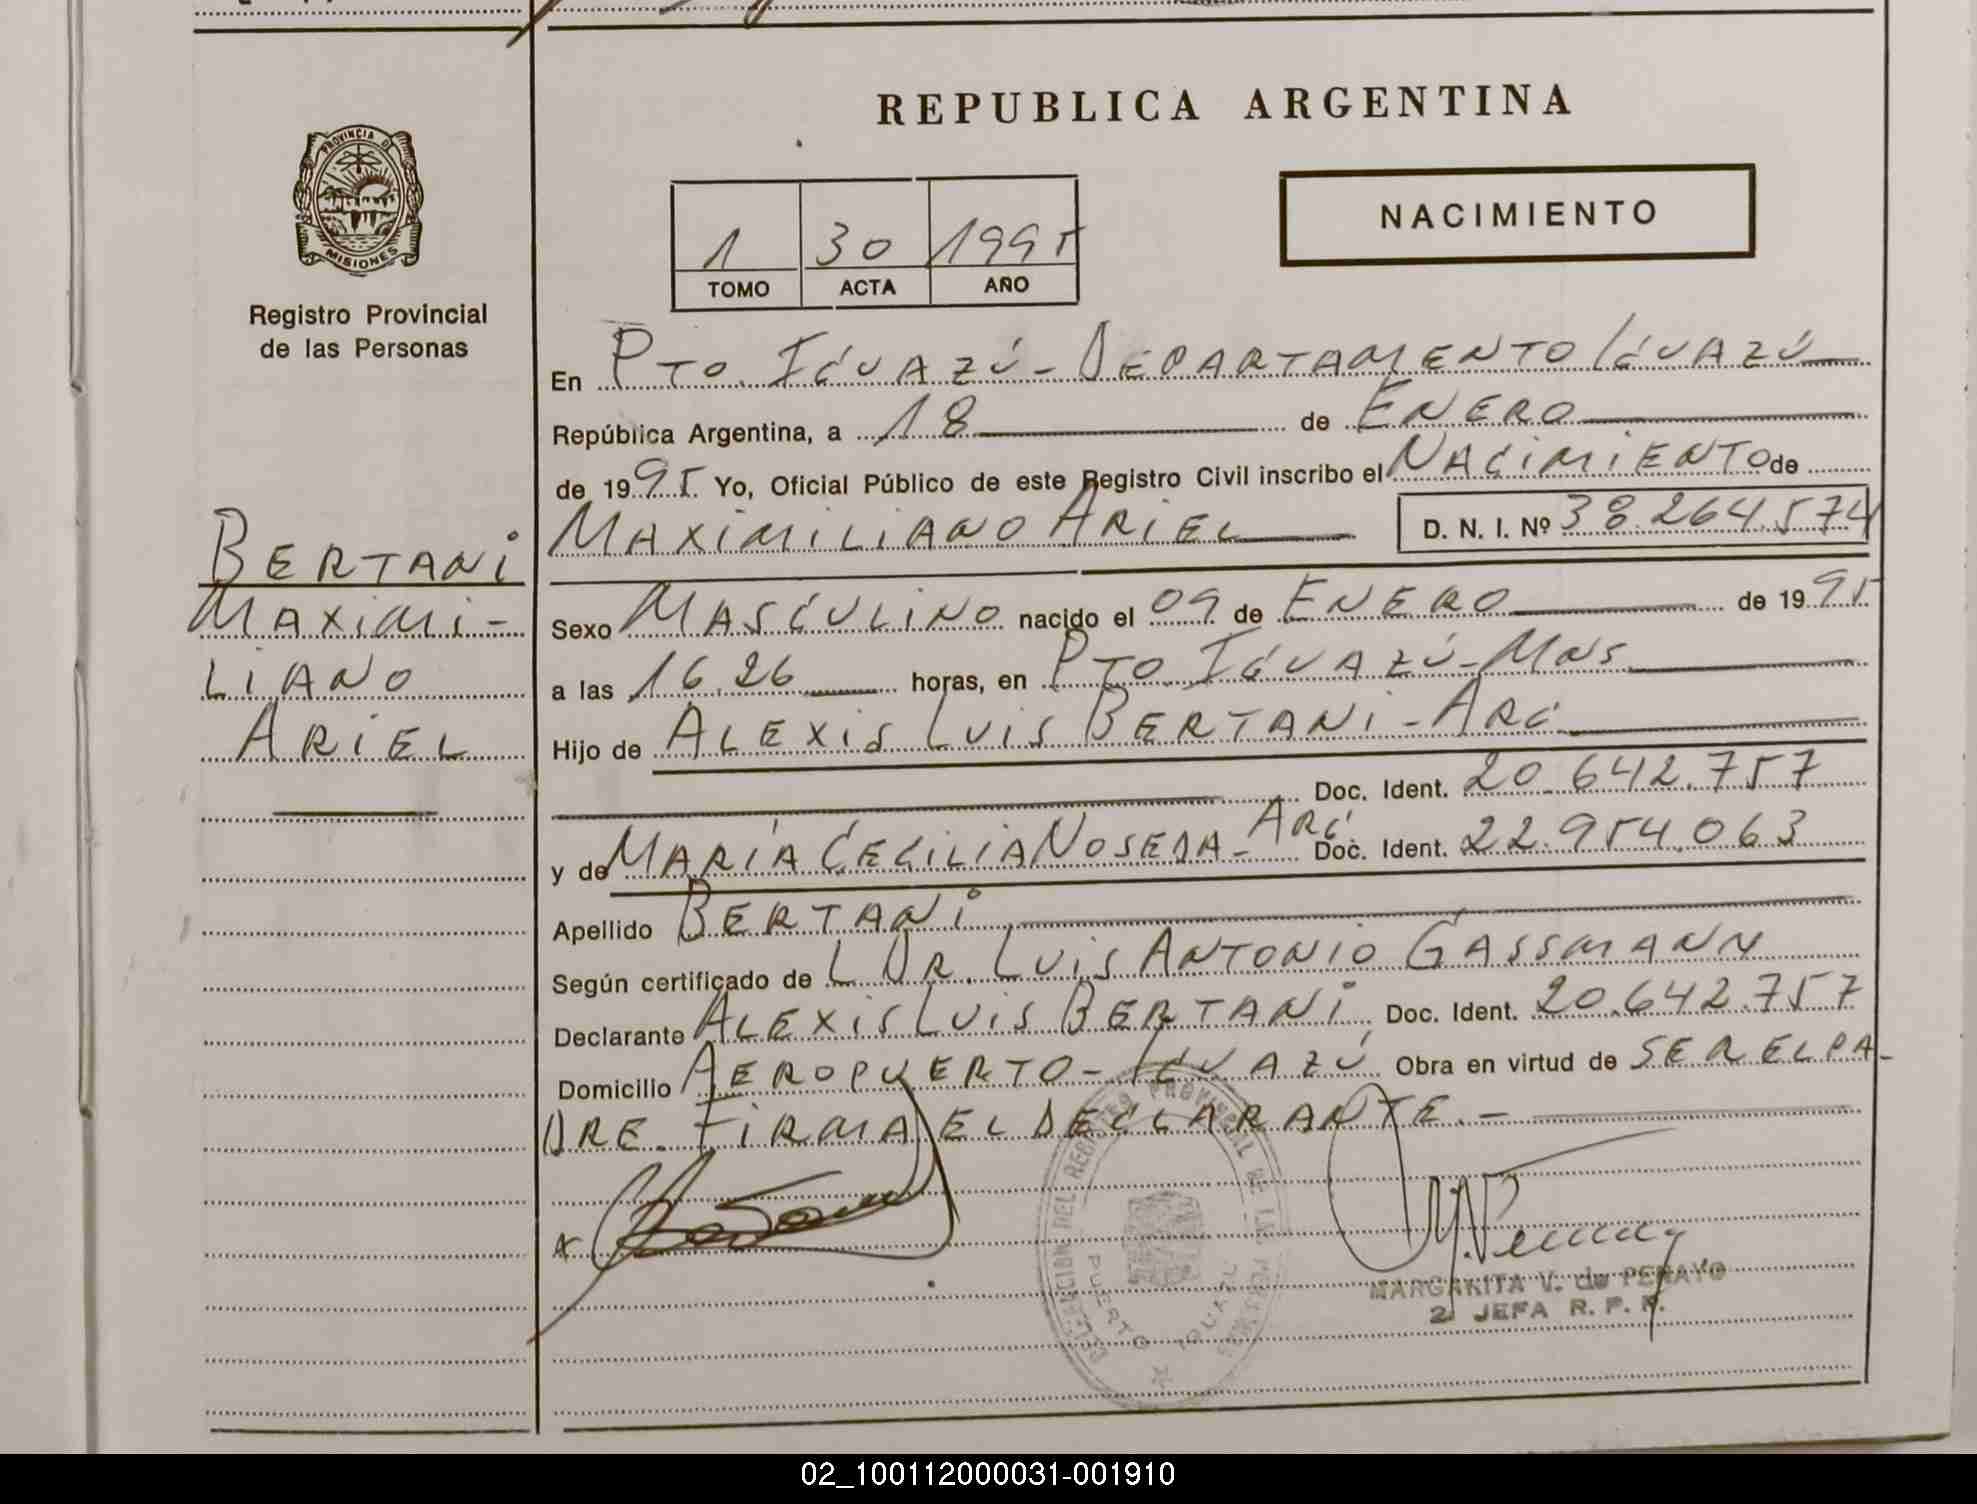 REPUBLICA ARGENTINA
PROVINCIA DE
MISIONES
Registro Provincial
de las Personas
NACIMIENTO
1 30 1995
TOMO ACTA AÑO
En Pto. Iguazú - Departamento Iguazú
República Argentina, a 18 de Enero
de 1995 Yo, Oficial Público de este Registro Civil inscribo el Nacimiento de
Maximiliano Ariel D. N. I. Nº 38.264.574
Bertani
Maximi-
liano
Ariel
Sexo Masculino nacido el 09 de Enero de 1995
a las 16.26 horas, en Pto. Iguazú - Mns
Hijo de Alexis Luis Bertani - Arg.
Doc. Ident. 20.642.757
y de María Cecilia Noseda - Arg. Doc. Ident. 22.954.063
Apellido Bertani
Según certificado de L Dr. Luis Antonio Gassmann
Declarante Alexis Luis Bertani Doc. Ident. 20.642.757
Domicilio Aeropuerto - Iguazú Obra en virtud de ser el pa-
dre. Firma el declarante. -
DELEGACION DEL REGISTRO PROVINCIAL DE LAS PERSONAS
PUERTO IGUAZU
MARGARITA V. de PENAYO
2 JEFA R. P. P.
02_100112000031-001910